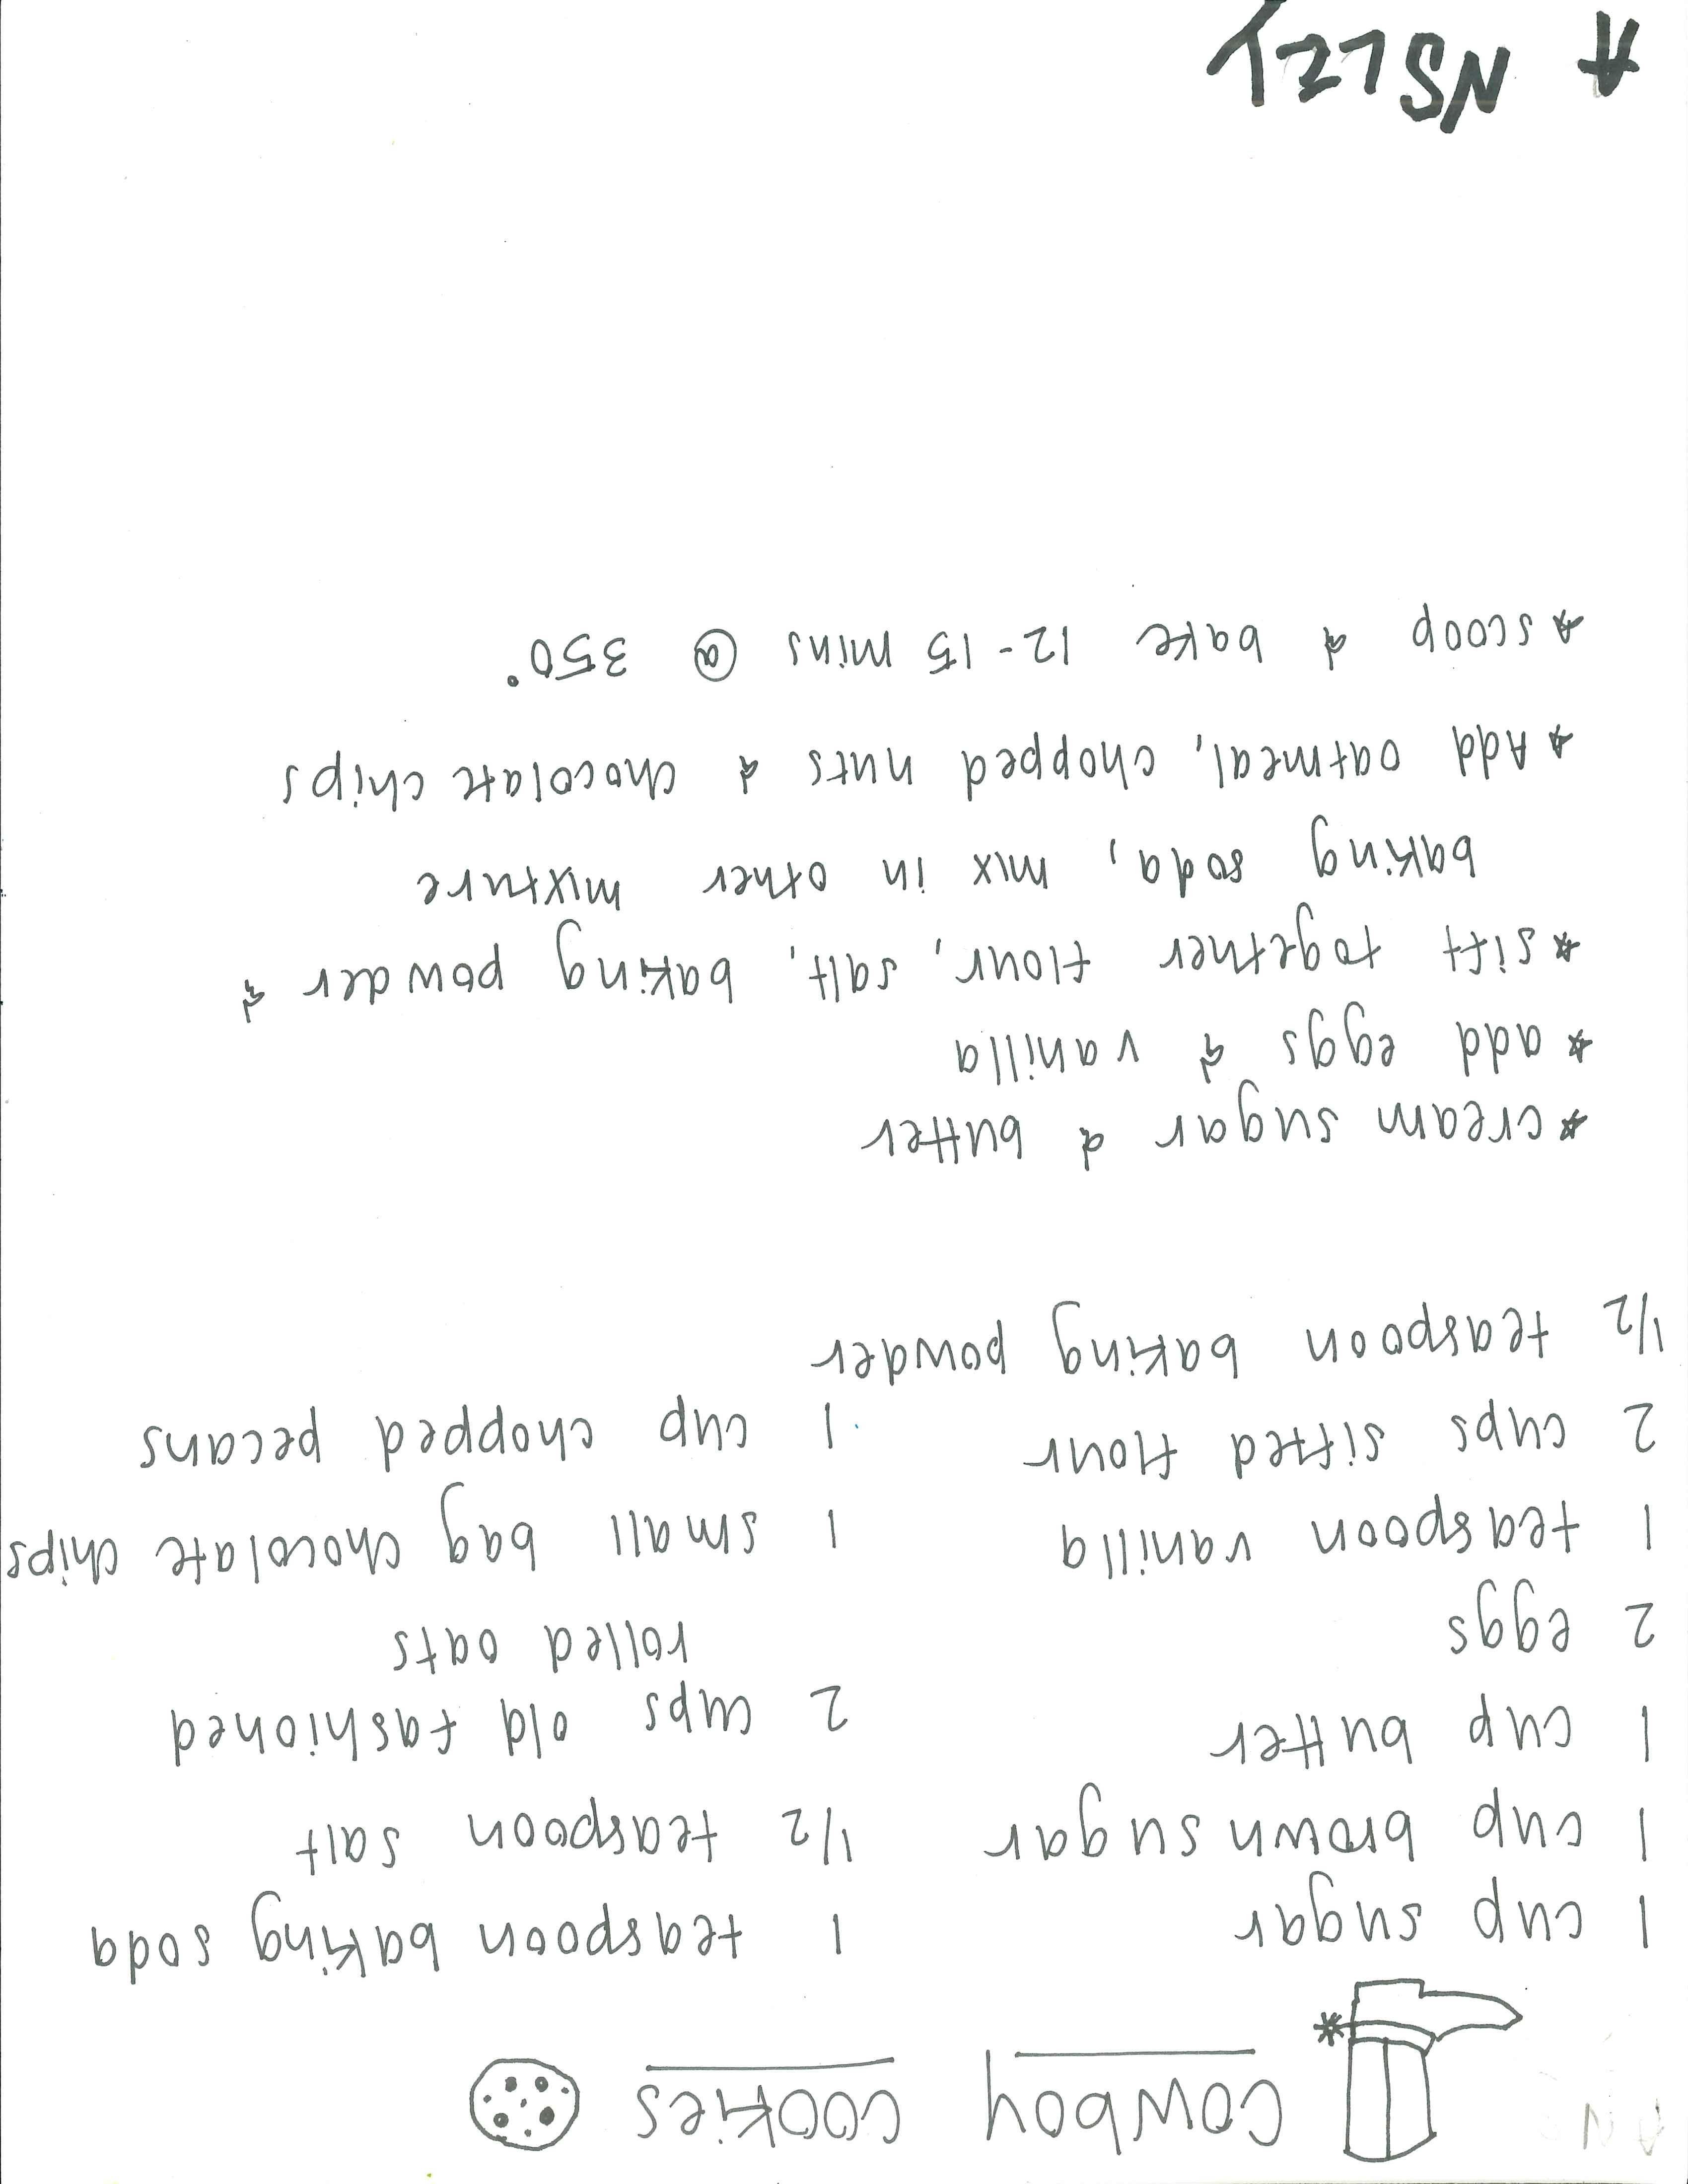 cowboy cookies
1 cup sugar
1 cup brown sugar
1 cup butter
2 eggs
1 teaspoon vanilla
2 cups sifted flour
1/2 teaspoon baking powder
1 teaspoon baking soda
1/2 teaspoon salt
2 cups old fashioned
rolled oats
1 small bag chocolate chips
1 cup chopped pecans
* cream sugar & butter
* add eggs & vanilla
* sift together flour, salt, baking powder &
baking soda, mix in other mixture
* Add oatmeal, chopped nuts & chocolate chips
* scoop & bake 12-15 mins @ 350°
A NSLEY